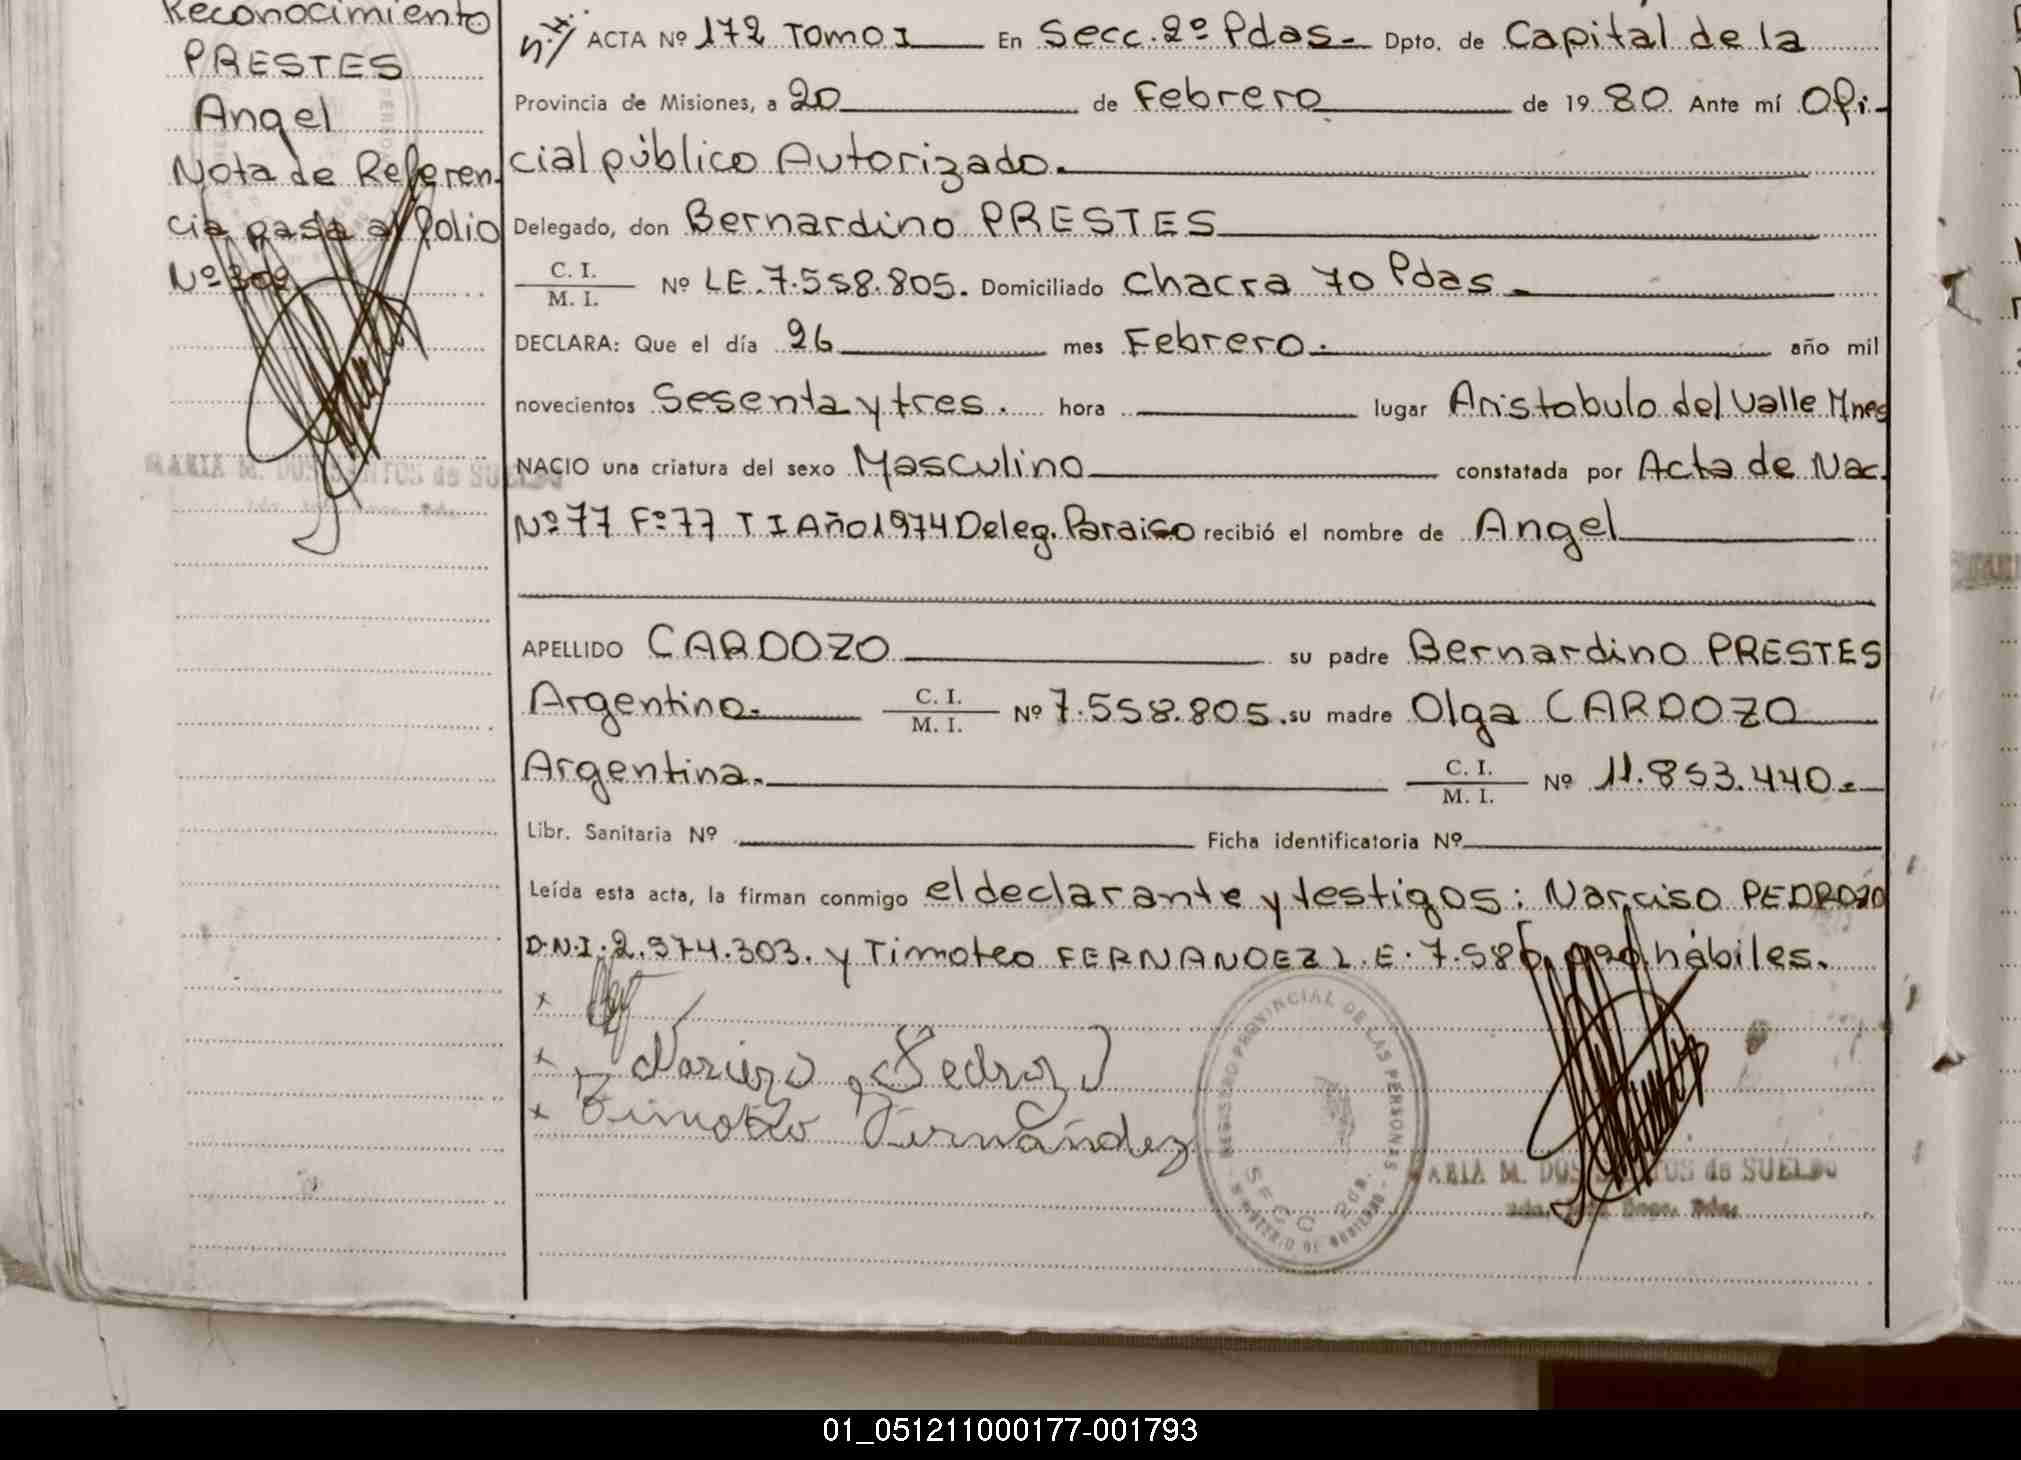 Reconocimiento
PRESTES
Angel
Nota de Referen-
cia pasa al folio
Nº 302
MARIA M. DOS SANTOS de SUELDO
ACTA Nº 172 Tomo I En Secc. 2º Pdas. Dpto. de Capital de la
Provincia de Misiones, a 20 de Febrero de 1980 Ante mí Ofi-
cial público Autorizado.
Delegado, don Bernardino PRESTES
C. I.
M. I.
Nº LE. 7.558.805. Domiciliado Chacra 70 Pdas.
DECLARA: Que el día 26 mes Febrero. año mil
novecientos Sesenta y tres. hora lugar Aristobulo del Valle Mnes
NACIO una criatura del sexo Masculino constatada por Acta de Nac.
Nº 77 Fº 77 T I Año 1974 Deleg. Paraiso recibió el nombre de Angel
APELLIDO CARDOZO su padre Bernardino PRESTES
Argentino. C. I.
M. I.
Nº 7.558.805. su madre Olga CARDOZO
Argentina. C. I.
M. I.
Nº 11.853.440.
Libr. Sanitaria Nº Ficha identificatoria Nº
Leída esta acta, la firman conmigo el declarante y testigos: Narciso PEDROZO
D.N.I. 2.974.303. y Timoteo FERNANDEZ L.E. 7.586. hábiles.
x
x Narcizo Pedrozo
x Timoteo Fernández
REGISTRO PROVINCIAL DE LAS PERSONAS
SECC 2DA.
MINISTERIO DE GOBIERNO
MARIA M. DOS SANTOS de SUELDO
01_051211000177-001793